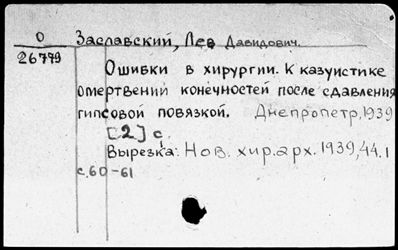 О Заславский, Лев Давидович.
26779
Ошибки в хирургии. К казуистике
омертвений конечностей после сдавления
гипсовой повязкой. Днепропетр, 1939
[2] с.
Вырезка: Нов. хир. арх. 1939, 44.1
с.60-61